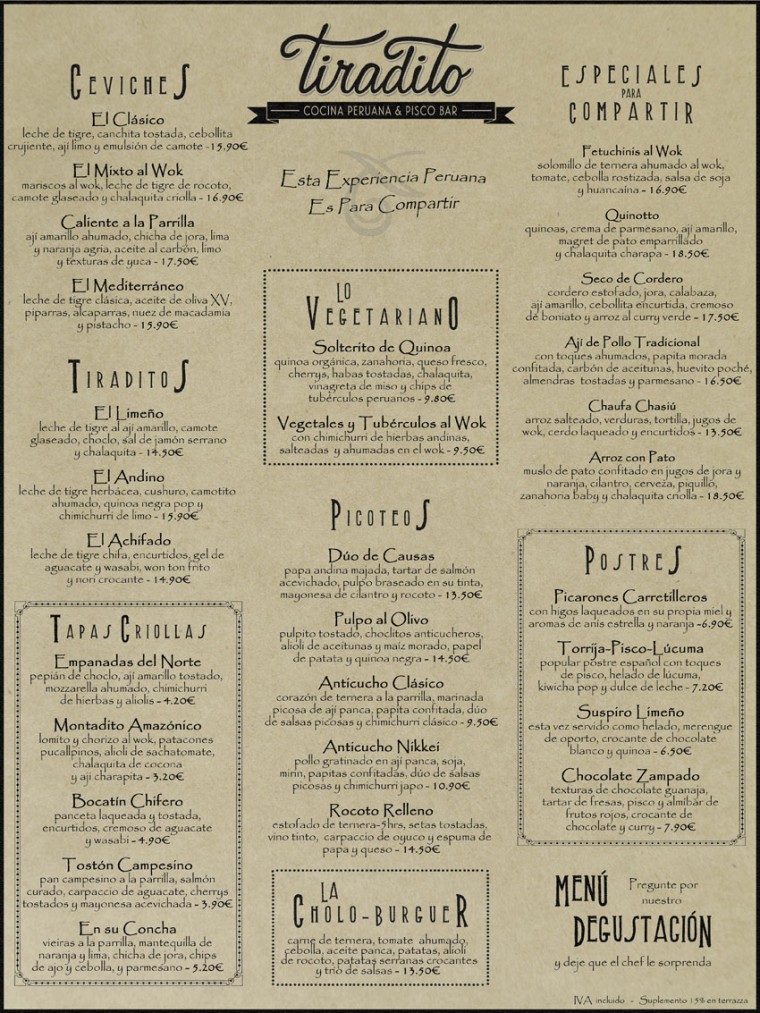 Tiradito
COCINA PERUANA & PISCO BAR
Esta Experiencia Peruana
Es Para Compartir
CEVICHES
El Clásico
leche de tigre, canchita tostada, cebollita
crujiente, ají limo y emulsión de camote - 15.90€
El Mixto al Wok
mariscos al wok, leche de tigre de rocoto,
camote glaseado y chalaquita criolla - 16.90€
Caliente a la Parrilla
ají amarillo ahumado, chicha de jora, lima
y naranja agria, aceite al carbón, limo
y texturas de yuca - 17.50€
El Mediterráneo
leche de tigre clásica, aceite de oliva XV,
piparras, alcaparras, nuez de macadamia
y pistacho - 15.90€
TIRADITOS
El Limeño
leche de tigre al ají amarillo, camote
glaseado, choclo, sal de jamón serrano
y chalaquita - 14.50€
El Andino
leche de tigre herbácea, cushuro, camotito
ahumado, quinoa negra pop y
chimichurri de limo - 15.90€
El Achifado
leche de tigre chifa, encurtidos, gel de
aguacate y wasabi, won ton frito
y nori crocante - 14.90€
TAPAS CRIOLLAS
Empanadas del Norte
pepián de choclo, ají amarillo tostado,
mozzarella ahumado, chimichurri
de hierbas y aliolis - 4.20€
Montadito Amazónico
lomito y chorizo al wok, patacones
pucallpinos, alioli de sachatomate,
chalaquita de cocona
y ají charapita - 3.20€
Bocatín Chifero
panceta laqueada y tostada,
encurtidos, cremoso de aguacate
y wasabi - 4.90€
Tostón Campesino
pan campesino a la parrilla, salmón
curado, carpaccio de aguacate, cherrys
tostados y mayonesa acevichada - 3.90€
En su Concha
vieiras a la parrilla, mantequilla de
naranja y lima, chicha de jora, chips
de ajo y cebolla, y parmesano - 5.20€
LO
VEGETARIANO
Solterito de Quinoa
quinoa orgánica, zanahoria, queso fresco,
cherrys, habas tostadas, chalaquita,
vinagreta de miso y chips de
tubérculos peruanos - 9.80€
Vegetales y Tubérculos al Wok
con chimichurri de hierbas andinas,
salteadas y ahumadas en el wok - 9.50€
PICOTEOS
Dúo de Causas
papa andina majada, tartar de salmón
acevichado, pulpo braseado en su tinta,
mayonesa de cilantro y rocoto - 13.50€
Pulpo al Olivo
pulpito tostado, choclitos anticucheros,
alioli de aceitunas y maíz morado, papel
de patata y quinoa negra - 14.50€
Anticucho Clásico
corazón de ternera a la parrilla, marinada
picosa de ají panca, papita confitada, dúo
de salsas picosas y chimichurri clásico - 9.50€
Anticucho Nikkei
pollo gratinado en ají panca, soja,
mirin, papitas confitadas, dúo de salsas
picosas y chimichurri japo - 10.90€
Rocoto Relleno
estofado de ternera-5hrs, setas tostadas,
vino tinto, carpaccio de oyuco y espuma de
papa y queso - 14.50€
LA
CHOLO-BURGUER
carne de ternera, tomate ahumado,
cebolla, aceite panca, patatas, alioli
de rocoto, patatas serranas crocantes
y trío de salsas - 13.50€
ESPECIALES
PARA
COMPARTIR
Fetuchinis al Wok
solomillo de ternera ahumado al wok,
tomate, cebolla rostizada, salsa de soja
y huancaína - 16.90€
Quinotto
quinoas, crema de parmesano, ají amarillo,
magret de pato emparrillado
y chalaquita charapa - 18.50€
Seco de Cordero
cordero estofado, jora, calabaza,
ají amarillo, cebollita encurtida, cremoso
de boniato y arroz al curry verde - 17.50€
Ají de Pollo Tradicional
con toques ahumados, papita morada
confitada, carbón de aceitunas, huevito poché,
almendras tostadas y parmesano - 16.50€
Chaufa Chasiú
arroz salteado, verduras, tortilla, jugos de
wok, cerdo laqueado y encurtidos - 13.50€
Arroz con Pato
muslo de pato confitado en jugos de jora y
naranja, cilantro, cerveza, piquillo,
zanahoria baby y chalaquita criolla - 18.50€
POSTRES
Picarones Carretilleros
con higos laqueados en su propia miel y
aromas de anís estrella y naranja -6.90€
Torrija-Pisco-Lúcuma
popular postre español con toques
de pisco, helado de lúcuma,
kiwicha pop y dulce de leche - 7.20€
Suspiro Limeño
esta vez servido como helado, merengue
de oporto, crocante de chocolate
blanco y quinoa - 6.50€
Chocolate Zampado
texturas de chocolate guanaja,
tartar de fresas, pisco y almíbar de
frutos rojos, crocante de
chocolate y curry - 7.90€
MENÚ
Pregunte por
nuestro
DEGUSTACIÓN
y deje que el chef le sorprenda
IVA incluido - Suplemento 15% en terraza